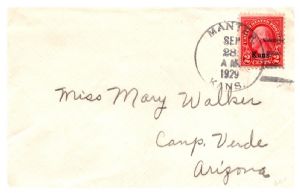 SEP
28
A.M.
1929
Kans.
Miss Mary Walker
Camp Verde
Arizona